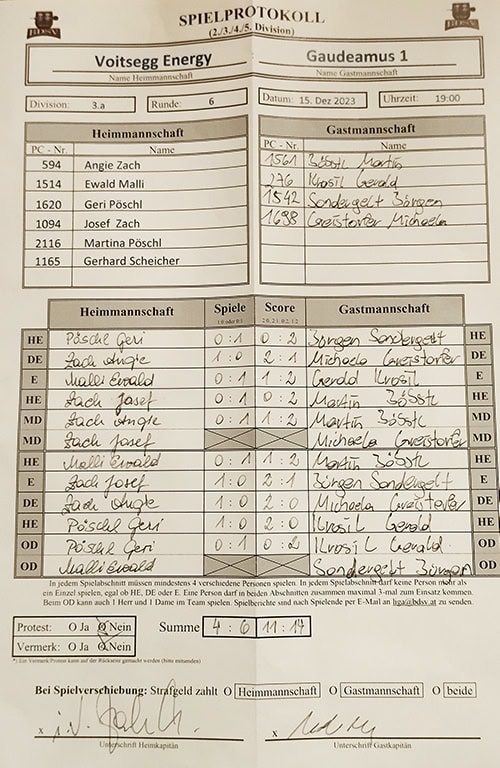 BDSV
SPIELPROTOKOLL
(2./3./4./5. Division)
BDSV
Voitsegg Energy
Name Heimmannschaft
Gaudeamus 1
Name Gastmannschaft
Division: 3.a
Runde: 6
Datum: 15. Dez 2023
Uhrzeit: 19:00
Heimmannschaft
PC - Nr. Name
594 Angie Zach
1514 Ewald Malli
1620 Geri Pöschl
1094 Josef Zach
2116 Martina Pöschl
1165 Gerhard Scheicher
Gastmannschaft
PC - Nr. Name
1561 Bösstl Martin
276 Krosil Gerald
1542 Sondergelt Jürgen
1698 Greistorfer Michaela
Heimmannschaft Spiele Score Gastmannschaft
1:0 oder 0:1 2:0, 2:1, 0:2, 1:2
HE Pöschl Geri 0 : 1 0 : 2 Jürgen Sondergelt HE
DE Zach Angie 1 : 0 2 : 1 Michaela Greistorfer DE
E Malli Ewald 0 : 1 1 : 2 Gerald Krosil E
HE Zach Josef 0 : 1 0 : 2 Martin Bösstl HE
MD Zach Angie 0 : 1 1 : 2 Martin Bösstl MD
MD Zach Josef Michaela Greistorfer MD
HE Malli Ewald 0 : 1 1 : 2 Martin Bösstl HE
E Zach Josef 1 : 0 2 : 1 Jürgen Sondergelt E
DE Zach Angie 1 : 0 2 : 0 Michaela Greistorfer DE
HE Pöschl Geri 1 : 0 2 : 0 Krosil Gerald HE
OD Pöschl Geri 0 : 1 0 : 2 Krosil Gerald OD
OD Malli Ewald Sondergelt Jürgen OD
In jedem Spielabschnitt müssen mindestens 4 verschiedene Personen spielen. In jedem Spielabschnitt darf keine Person mehr als
ein Einzel spielen, egal ob HE, DE oder E. Eine Person darf in beiden Abschnitten zusammen maximal 3-mal zum Einsatz kommen.
Beim OD kann auch 1 Herr und 1 Dame im Team spielen. Spielberichte sind nach Spielende per E-Mail an hga@bdsv.at zu senden.
Protest: O Ja O Nein
Vermerk: O Ja O Nein
Summe 4 : 6 11 : 17
*) Ein Vermerk/Protest kann auf der Rückseite gemacht werden (bitte mitsenden)
Bei Spielverschiebung: Strafgeld zahlt O Heimmannschaft O Gastmannschaft O beide
x i.V.
Unterschrift Heimkapitän
x
Unterschrift Gastkapitän